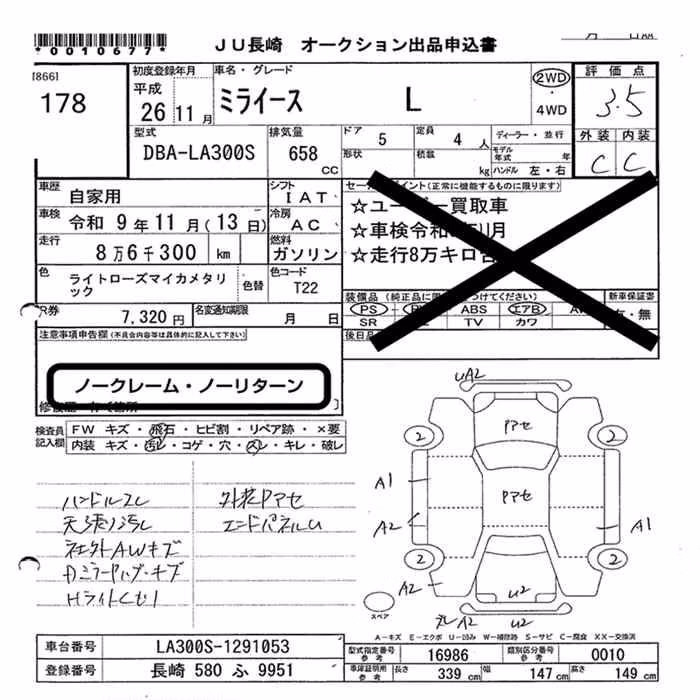 *0010677*
JU長崎 オークション出品申込書
[866]
178
初度登録年月
平成
26 11 月
車名・グレード
ミライース L
2WD
・
4WD
評価点
3.5
外装 内装
C C
型式
DBA-LA300S
排気量
658 CC
ドア 5
定員 4 人
形状
積載 kg
ディーラー・並行
モデル年式 年
ハンドル 左・右
車歴
自家用
シフト
IAT
車検 令和 9 年 11 月(13 日)
冷房
AC
走行
8万6千300 km
燃料
ガソリン
色
ライトローズマイカメタリック
色替
色コード
T22
R券
7,320 円
名変通知期限
月 日
セールスポイント(正常に機能するものに限ります)
☆ユーザー買取車
☆車検令和
月
☆走行8万キロ台
装備品
PS
ABS
エアB
SR
TV
カワ
新車保証書
有・無
後日品
注意事項申告欄(不具合内容等は具体的に記入して下さい)
ノークレーム・ノーリターン
検査員
記入欄
FW キズ・飛石・ヒビ割・リペア跡・×要
内装 キズ・汚レ・コゲ・穴・スレ・キレ・破レ
ハンドルスレ
天張り汚レ
社外AWキズ
Dミラーカバーキズ
Hライトくもり
外装Pアセ
エンドパネルU
UA2
Pアセ
2
2
A1
Pアセ
A2
A1
2
2
A2
U2
A2
U2
スペア
A-キズ E-エクボ U-凹み W-補修跡 S-サビ C-腐食 XX-交換済
車台番号
LA300S-1291053
登録番号
長崎 580 ふ 9951
型式指定番号
参考
16986
類別区分番号
参考
0010
車庫証明用
参考
長さ 339 cm
幅 147 cm
高さ 149 cm